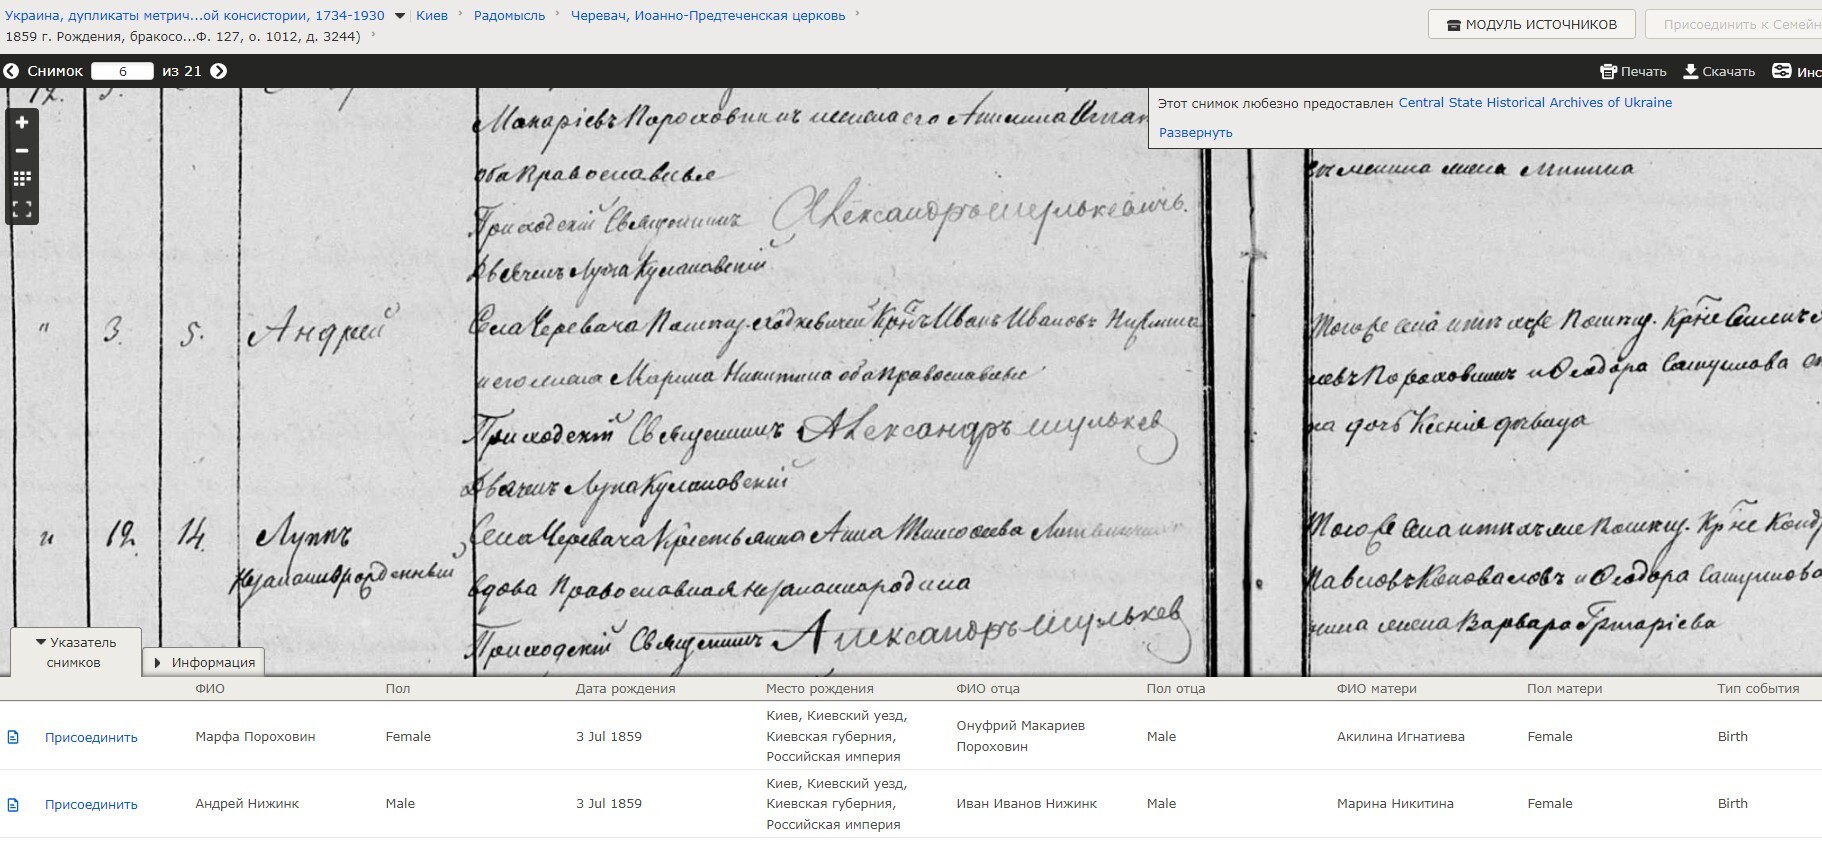 Украина, дупликаты метрич...ой консистории, 1734-1930 Киев Радомысль Черевач, Иоанно-Предтеченская церковь
1859 г. Рождения, бракосо...Ф. 127, о. 1012, д. 3244)
МОДУЛЬ ИСТОЧНИКОВ
Присоединить к Семейн
Снимок 6 из 21
Печать Скачать Инс
Этот снимок любезно предоставлен Central State Historical Archives of Ukraine
Развернуть
Макаріевъ Пороховникъ жена его Акилина
оба православные
Приходскій Священникъ Александръ Шулькевичь.
Дьячекъ Лупа Кулаковскій
" 3. 5. Андрей
Села Черевача Иванъ Ивановъ
и его жена Марина Никитина оба православные
Приходскій Священникъ Александръ Шулькев
Дьячекъ Лупа Кулаковскій
Того же села
и Ѳеодора
дочь Ксенія
и 12. 14. Луппъ
незаконнорожденный
Села Черевача Крестьянка Анна
вдова Православная незаконнародила
Приходскій Священникъ Александръ Шулькев
Того же села
Павловъ Коноваловъ и Ѳеодора
жена Варвара Григоріева
Указатель снимков
Информация
ФИО Пол Дата рождения Место рождения ФИО отца Пол отца ФИО матери Пол матери Тип события
Присоединить Марфа Пороховин Female 3 Jul 1859 Киев, Киевский уезд, Киевская губерния, Российская империя Онуфрий Макариев Пороховин Male Акилина Игнатиева Female Birth
Присоединить Андрей Нижинк Male 3 Jul 1859 Киев, Киевский уезд, Киевская губерния, Российская империя Иван Иванов Нижинк Male Марина Никитина Female Birth